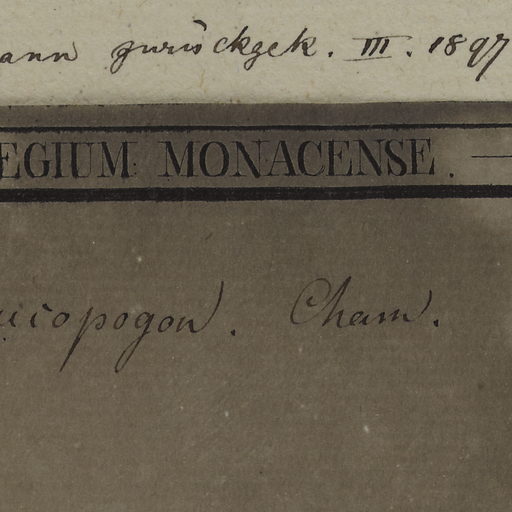 ann zurückgek. III. 1897
EGIUM MONACENSE.
uiopogon. Cham.